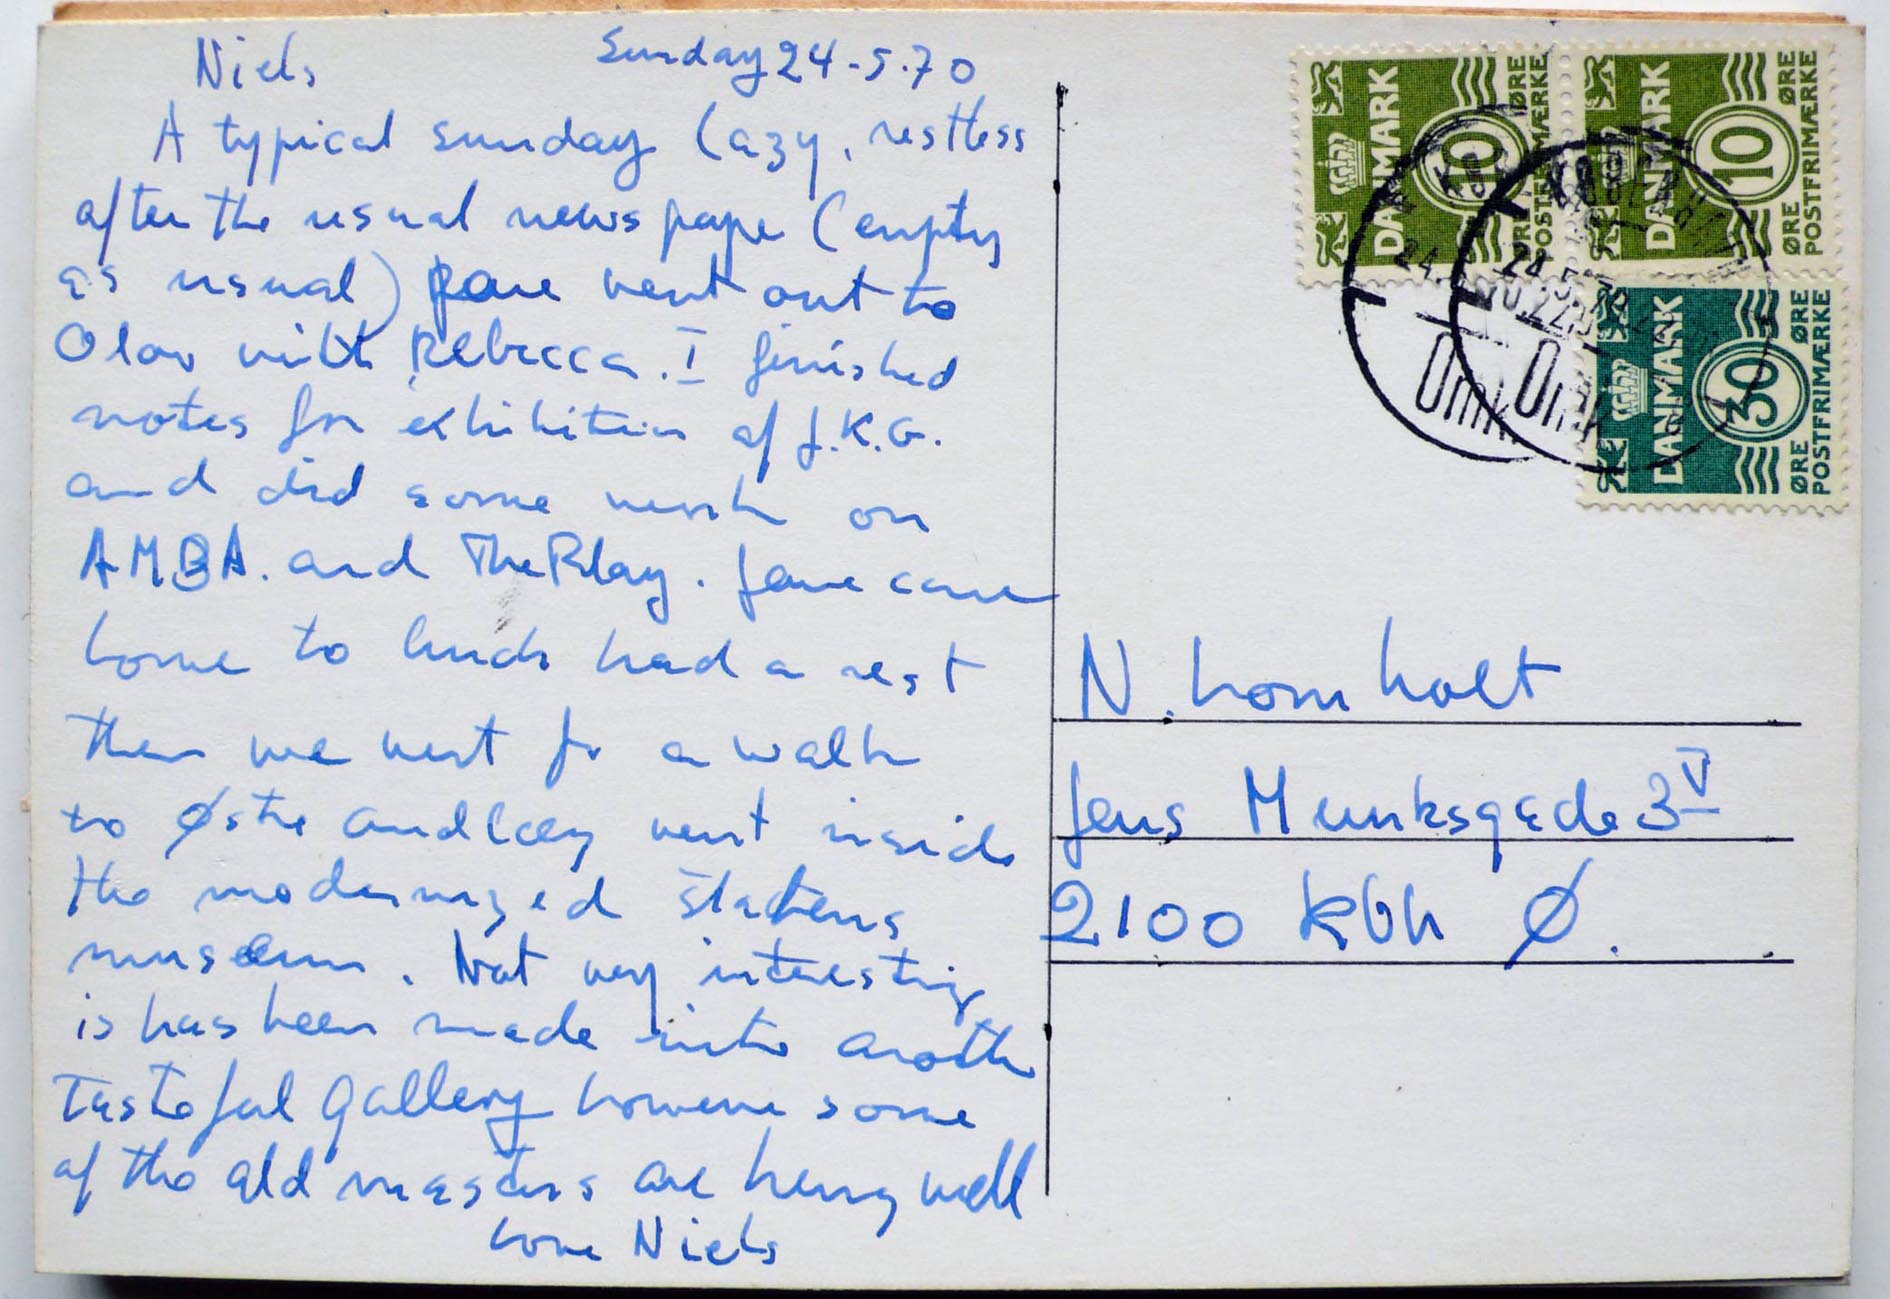 Niels
Sunday 24-5.70
A typical sunday lazy, restless
after the usual news pape (empty
as usual) Jane went out to
Olav with Rebecca. I finished
notes for exhibition of J.K.G.
and did some work on
AMBA. and The Play. Jane came
home to lunch had a rest
then we went for a walk
to Østre and went inside
the modernized Statens
museum. Not very interesting
is has been made into anoth
tasteful gallery however some
of the old masters are hung well
love Niels
DANMARK
10
ØRE
ØRE
POSTFRIMÆRKE
DANMARK
10
ØRE
ØRE
POSTFRIMÆRKE
DANMARK
30
ØRE
ØRE
POSTFRIMÆRKE
N. Lomholt
Jens Munksgade 3 V
2100 Kbh Ø.